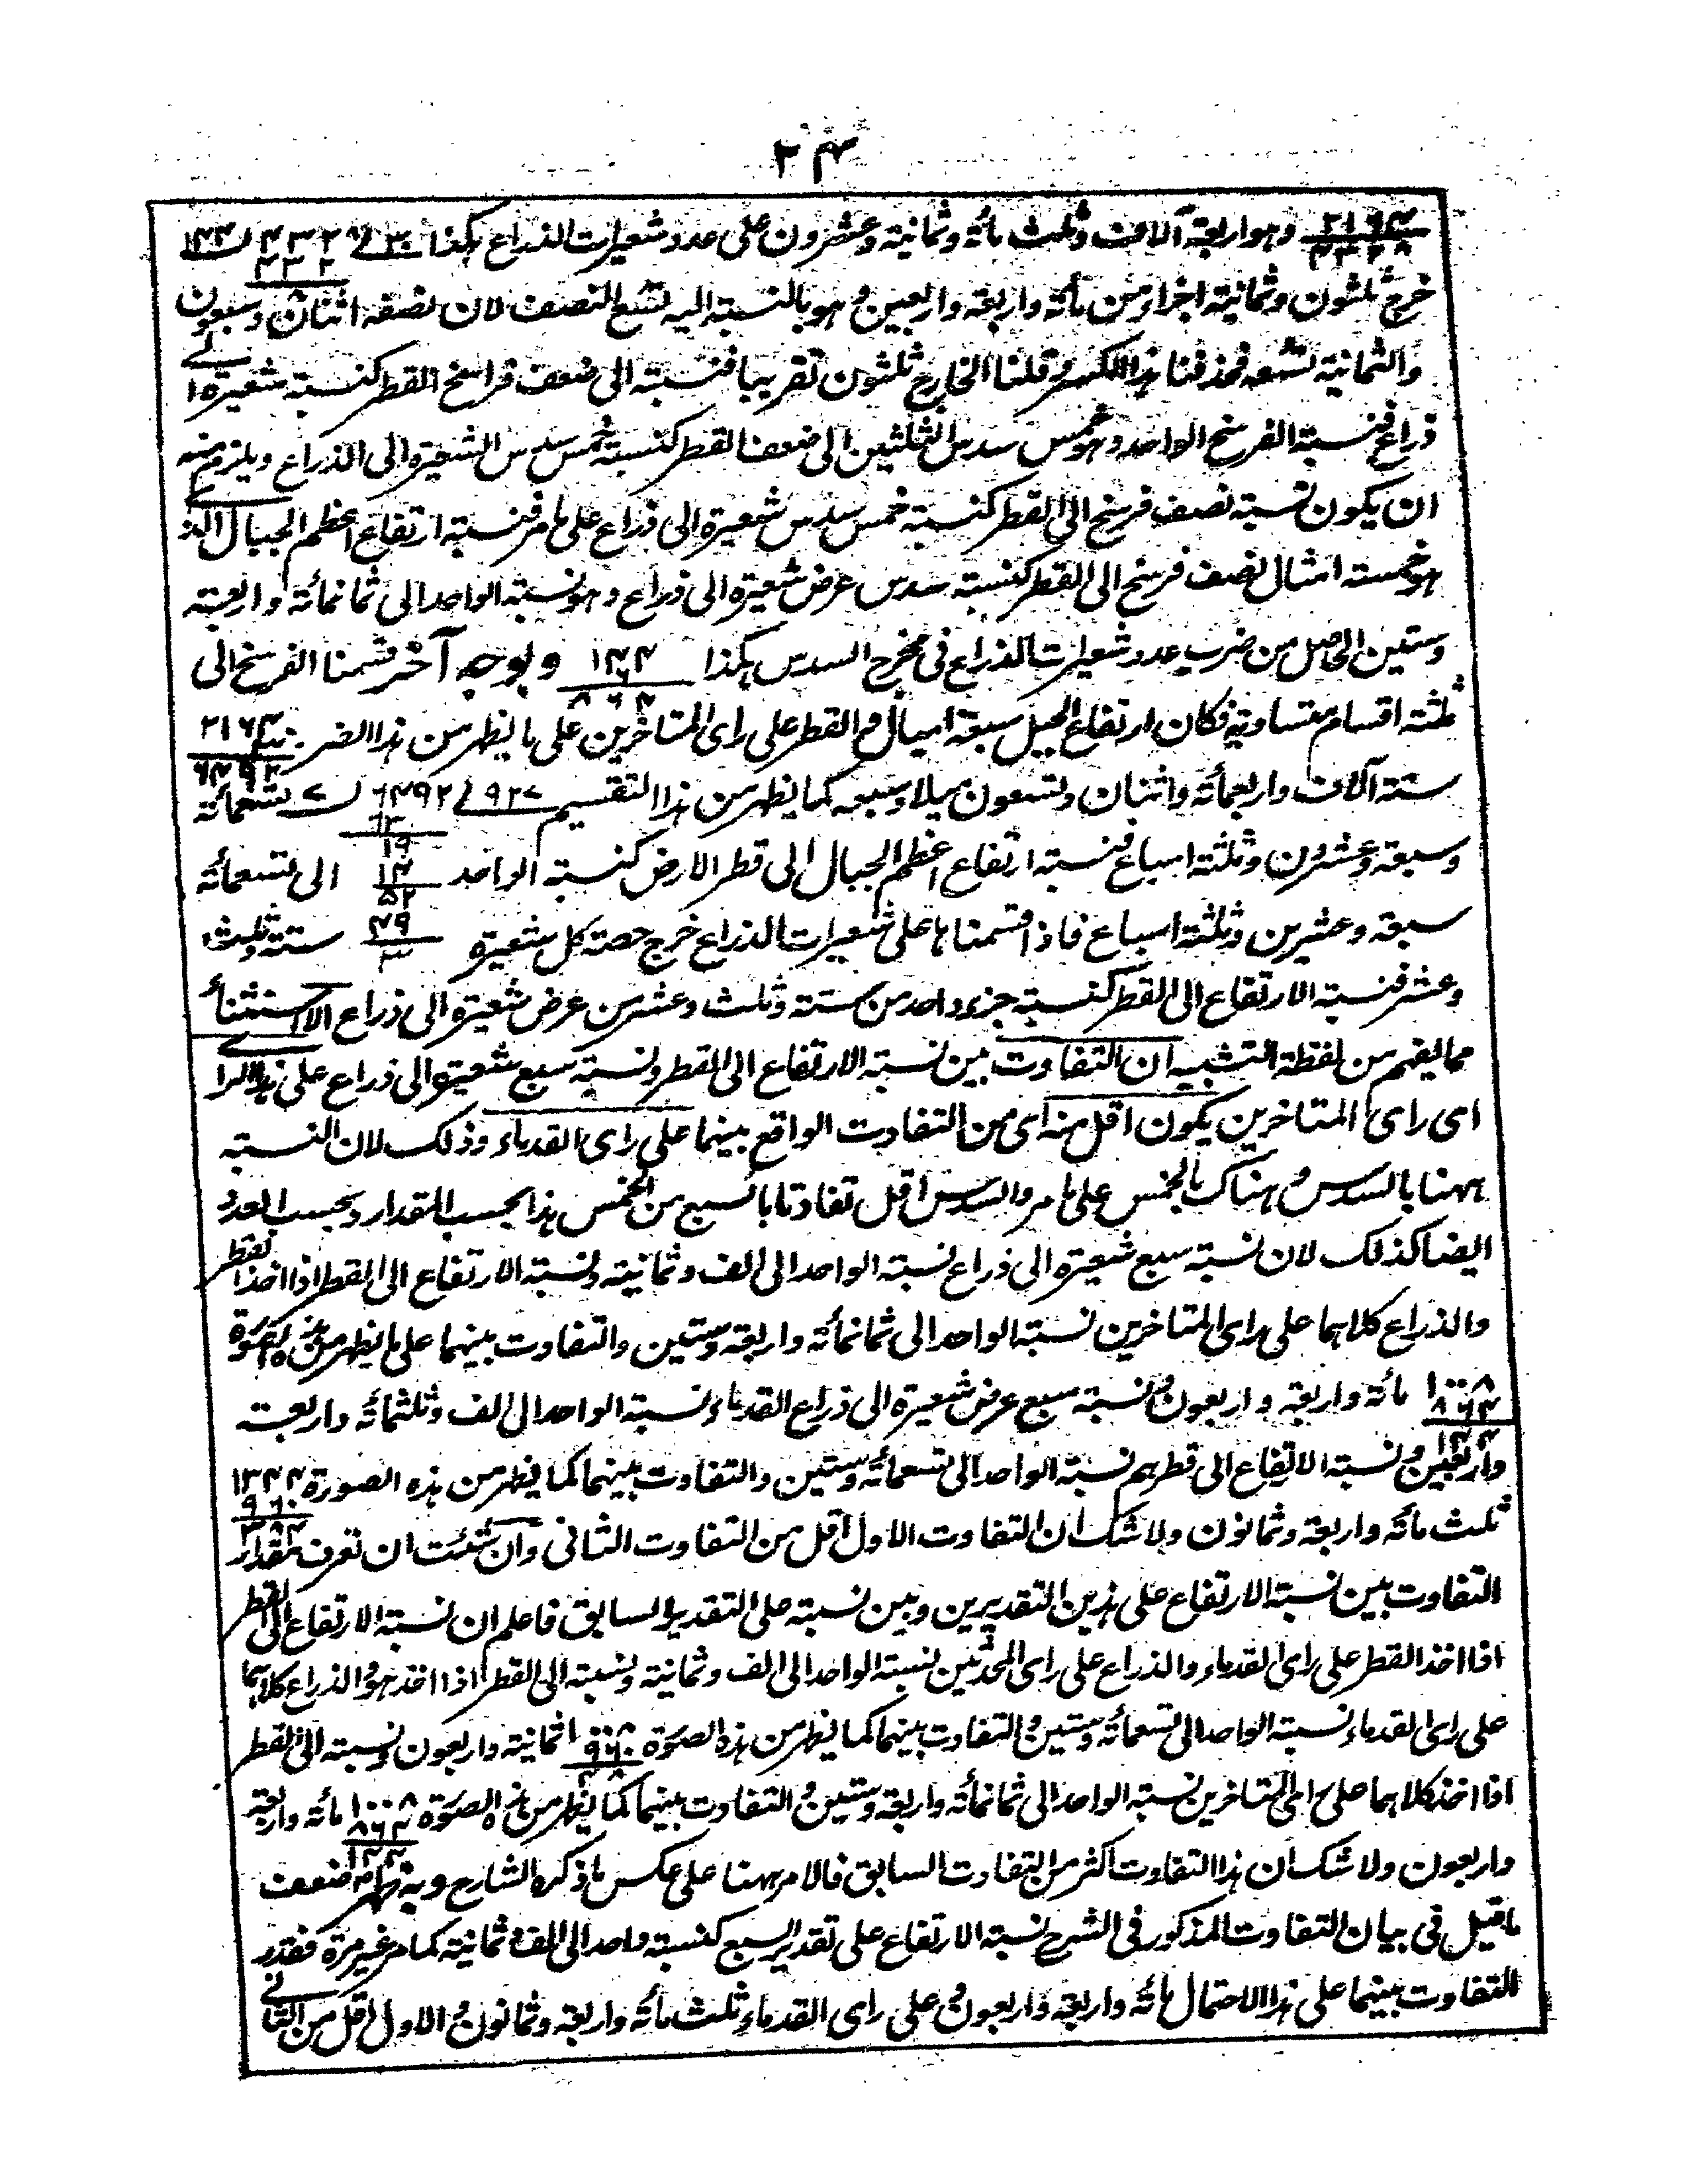 ٢٤
٢١٦٤ / ٤٣٢٨ وهو اربعة آلاف وثلث مائة وثمانية وعشرون على عدد شعيرات الذراع هكذا ٣٠ ٤٣٢٨ ١٤٤
خرج ثلثون وثمانية اجزاء من مائة واربعة واربعين وهو بالنسبة اليه تسع النصف لان نصفه اثنان وسبعون
والثمانية تسعه فحذفنا هذا الكسر وقلنا الخارج ثلثون تقريبا فنسبته الى ضعف فراسخ القطر كنسبة شعيرة الى
ذراع فنسبة الفرسخ الواحد وهو خمس سدس الثلثين الى ضعف القطر كنسبة خمس سدس الشعيرة الى الذراع ويلزم منه
ان يكون نسبة نصف فرسخ الى القطر كنسبة خمس سدس شعيرة الى ذراع على ما مر فنسبة ارتفاع اعظم الجبال الذي
هو خمسة امثال نصف فرسخ الى القطر كنسبة سدس عرض شعيرة الى ذراع وهو نسبة الواحد الى ثمانمائة واربعة
وستين الحاصل من ضرب عدد شعيرات الذراع فى مخرج السدس هكذا ١٤٤ ٦ ٨٦٤ وبوجه آخر قسمنا الفرسخ الى
ثلثة اقسام متساوية فكان ارتفاع الجبل سبعة اميال والقطر على راى المتاخرين على ما يظهر من هذا الضرب ٢١٦٤ ٣ ٦٤٩٢
ستة آلاف واربعمائة واثنان وتسعون ميلا وسبعه كما يظهر من هذا التقسيم ٩٢٧ ٦٤٩٢ ٧ تسعمائة
وسبعة وعشرون وثلثة اسباع فنسبة ارتفاع اعظم الجبال الى قطر الارض كنسبة الواحد ٦٣ ١٩ ١٤ ٥٢ الى تسعمائة
سبعة وعشرين وثلثة اسباع فاذا قسمناها على شعيرات الذراع خرج حصة كل شعيرة ٤٩ ٣ ستة وثلث
وعشر فنسبة الارتفاع الى القطر كنسبة جزء واحد من ستة وثلث وعشر من عرض شعيرة الى ذراع الاستثناء
مما يفهم من لفظة التشبيه ان التفاوت بين نسبة الارتفاع الى القطر ونسبة سبع شعيرة الى ذراع على هذا الراى
اى راى المتاخرين يكون اقل منه اى من التفاوت الواقع بينهما على راى القدماء وذلك لان النسبة
ههنا بالسدس وهناك بالخمس على ما مر والسدس اقل تفاوتا بالسبع من الخمس هذا بحسب المقدار وبحسب العدد
ايضا كذلك لان نسبة سبع شعيرة الى ذراع نسبة الواحد الى الف وثمانية ونسبة الارتفاع الى القطر اذا اخذ القطر
والذراع كلاهما على راى المتاخرين نسبة الواحد الى ثمانمائة واربعة وستين والتفاوت بينهما على ما يظهر من هذه الصورة
١٠٠٨ ٨٦٤ ١٤٤ مائة واربعة واربعون ونسبة سبع عرض شعيرة الى ذراع القدماء نسبة الواحد الى الف وثلثمائة واربعة
واربعين ونسبة الارتفاع الى قطرهم نسبة الواحد الى تسعمائة وستين والتفاوت بينهما كما يظهر من هذه الصورة ١٣٤٤ ٩٦٠ ٣٨٤
ثلث مائة واربعة وثمانون ولا شك ان التفاوت الاول اقل من التفاوت الثانى وان شئت ان تعرف مقدار
التفاوت بين نسبة الارتفاع على هذين التقديرين وبين نسبته على التقدير السابق فاعلم ان نسبة الارتفاع الى القطر
اذا اخذ القطر على راى القدماء والذراع على راى المحدثين نسبة الواحد الى الف وثمانية ونسبته الى القطر اذا اخذ هو والذراع كلاهما
على راى القدماء نسبة الواحد الى تسعمائة وستين والتفاوت بينهما كما يظهر من هذه الصورة ١٠٠٨ ٩٦٠ ٤٨ ثمانية واربعون ونسبته الى القطر
اذا اخذ كلاهما على راى المتاخرين نسبة الواحد الى ثمانمائة واربعة وستين والتفاوت بينهما كما يظهر من هذه الصورة ١٠٠٨ ٨٦٤ ١٤٤ مائة واربعة
واربعون ولا شك ان هذا التفاوت اكثر من التفاوت السابق فالامر ههنا على عكس ما ذكره الشارح وبه ظهر ضعف
ما قيل فى بيان التفاوت المذكور فى الشرح نسبة الارتفاع على تقدير السبع كنسبة واحد الى الف وثمانية كما مر غير مرة فقدر
التفاوت بينهما على هذا الاحتمال مائة واربعة واربعون وعلى راى القدماء ثلث مائة واربعة وثمانون والاول اقل من الثانى